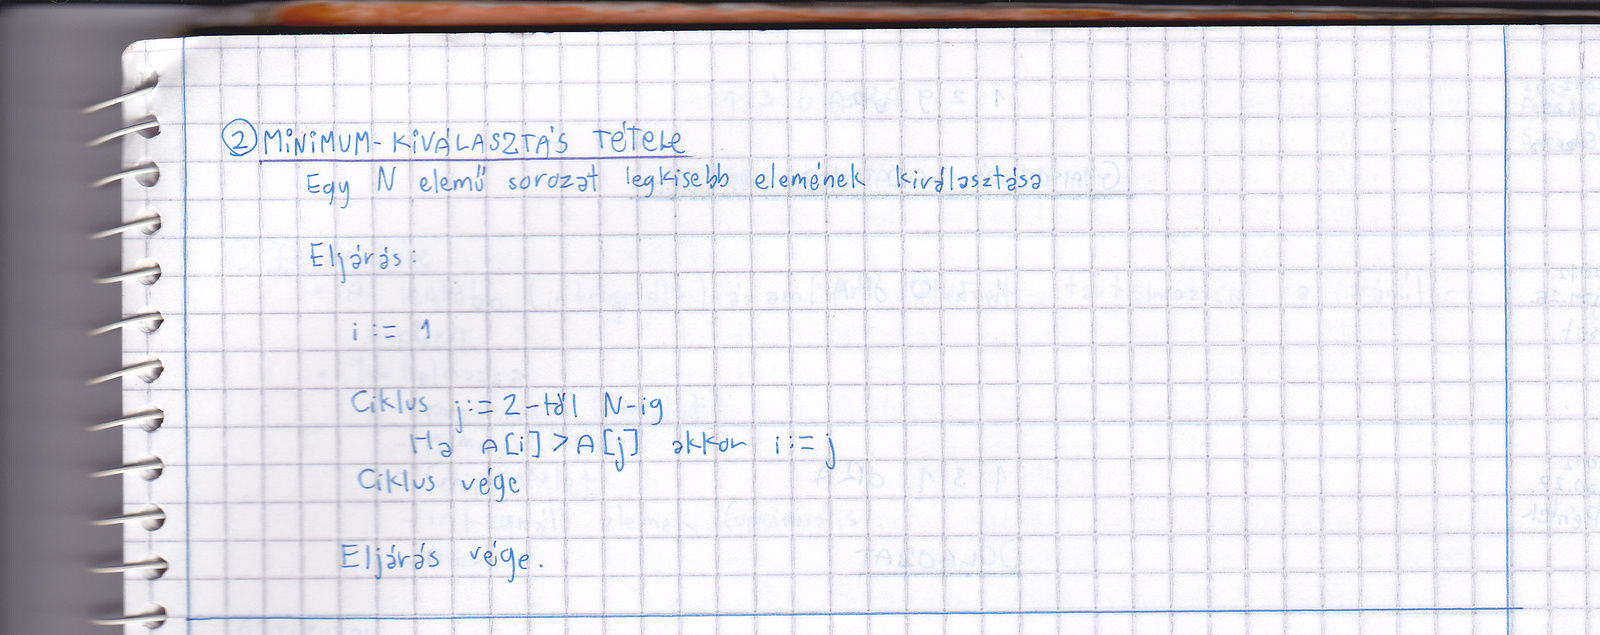 ② MINIMUM-KIVÁLASZTÁS TÉTELE
Egy N elemű sorozat legkisebb elemének kiválasztása
Eljárás:
i := 1
Ciklus j := 2-től N-ig
Ha A[i] > A[j] akkor i := j
Ciklus vége
Eljárás vége.